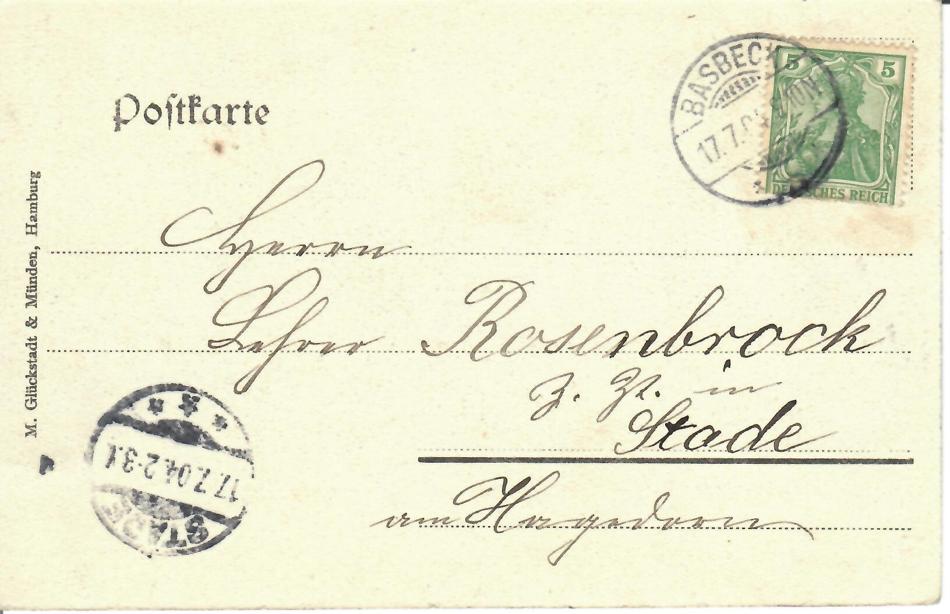 Postkarte
BASBECK
17.7.04
5 5
DEUTSCHES REICH
M. Glückstadt & Münden, Hamburg
Herrn
Lehrer Rosenbrock
z. Zt. in
Stade
am Hagedorn
STADE
17.7.04.2-3.